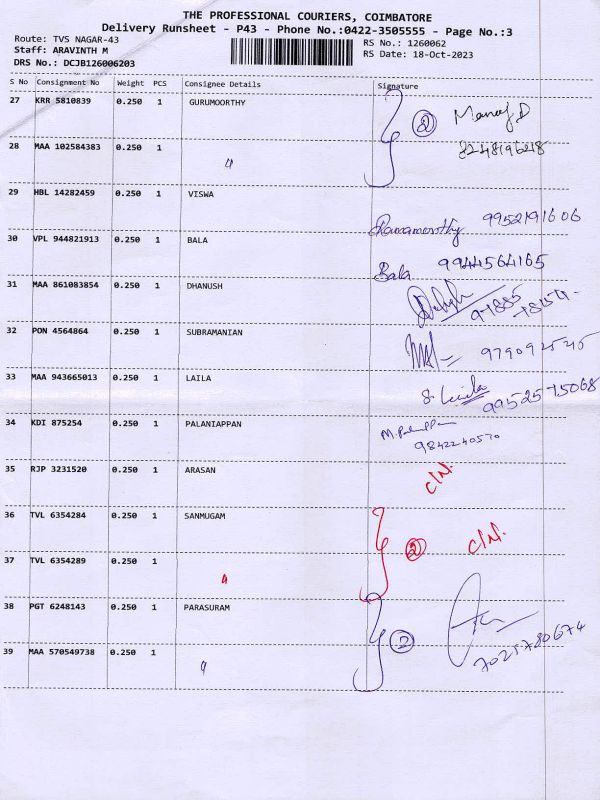 THE PROFESSIONAL COURIERS, COIMBATORE
Delivery Runsheet - P43 - Phone No.:0422-3505555 - Page No.:3
Route: TVS NAGAR-43 RS No.: 1260062
Staff: ARAVINTH M RS Date: 18-Oct-2023
DRS No.: DCJB126006203
S No Consignment No Weight PCS Consignee Details Signature
27 KRR 5810839 0.250 1 GURUMOORTHY 2 Manoj D
28 MAA 102584383 0.250 1 " 8248196218
29 HBL 14282459 0.250 1 VISWA
Ramamoorthy 9952191606
30 VPL 944821913 0.250 1 BALA
Bala 9944564165
31 MAA 861083854 0.250 1 DHANUSH
32 PON 4564864 0.250 1 SUBRAMANIAN
33 MAA 943665013 0.250 1 LAILA
S. Laila 9952575068
34 KDI 875254 0.250 1 PALANIAPPAN
9842240570
35 RJP 3231520 0.250 1 ARASAN C/N.
36 TVL 6354284 0.250 1 SANMUGAM
2 C/N.
37 TVL 6354289 0.250 1 "
38 PGT 6248143 0.250 1 PARASURAM
2 7025780674
39 MAA 570549738 0.250 1 "